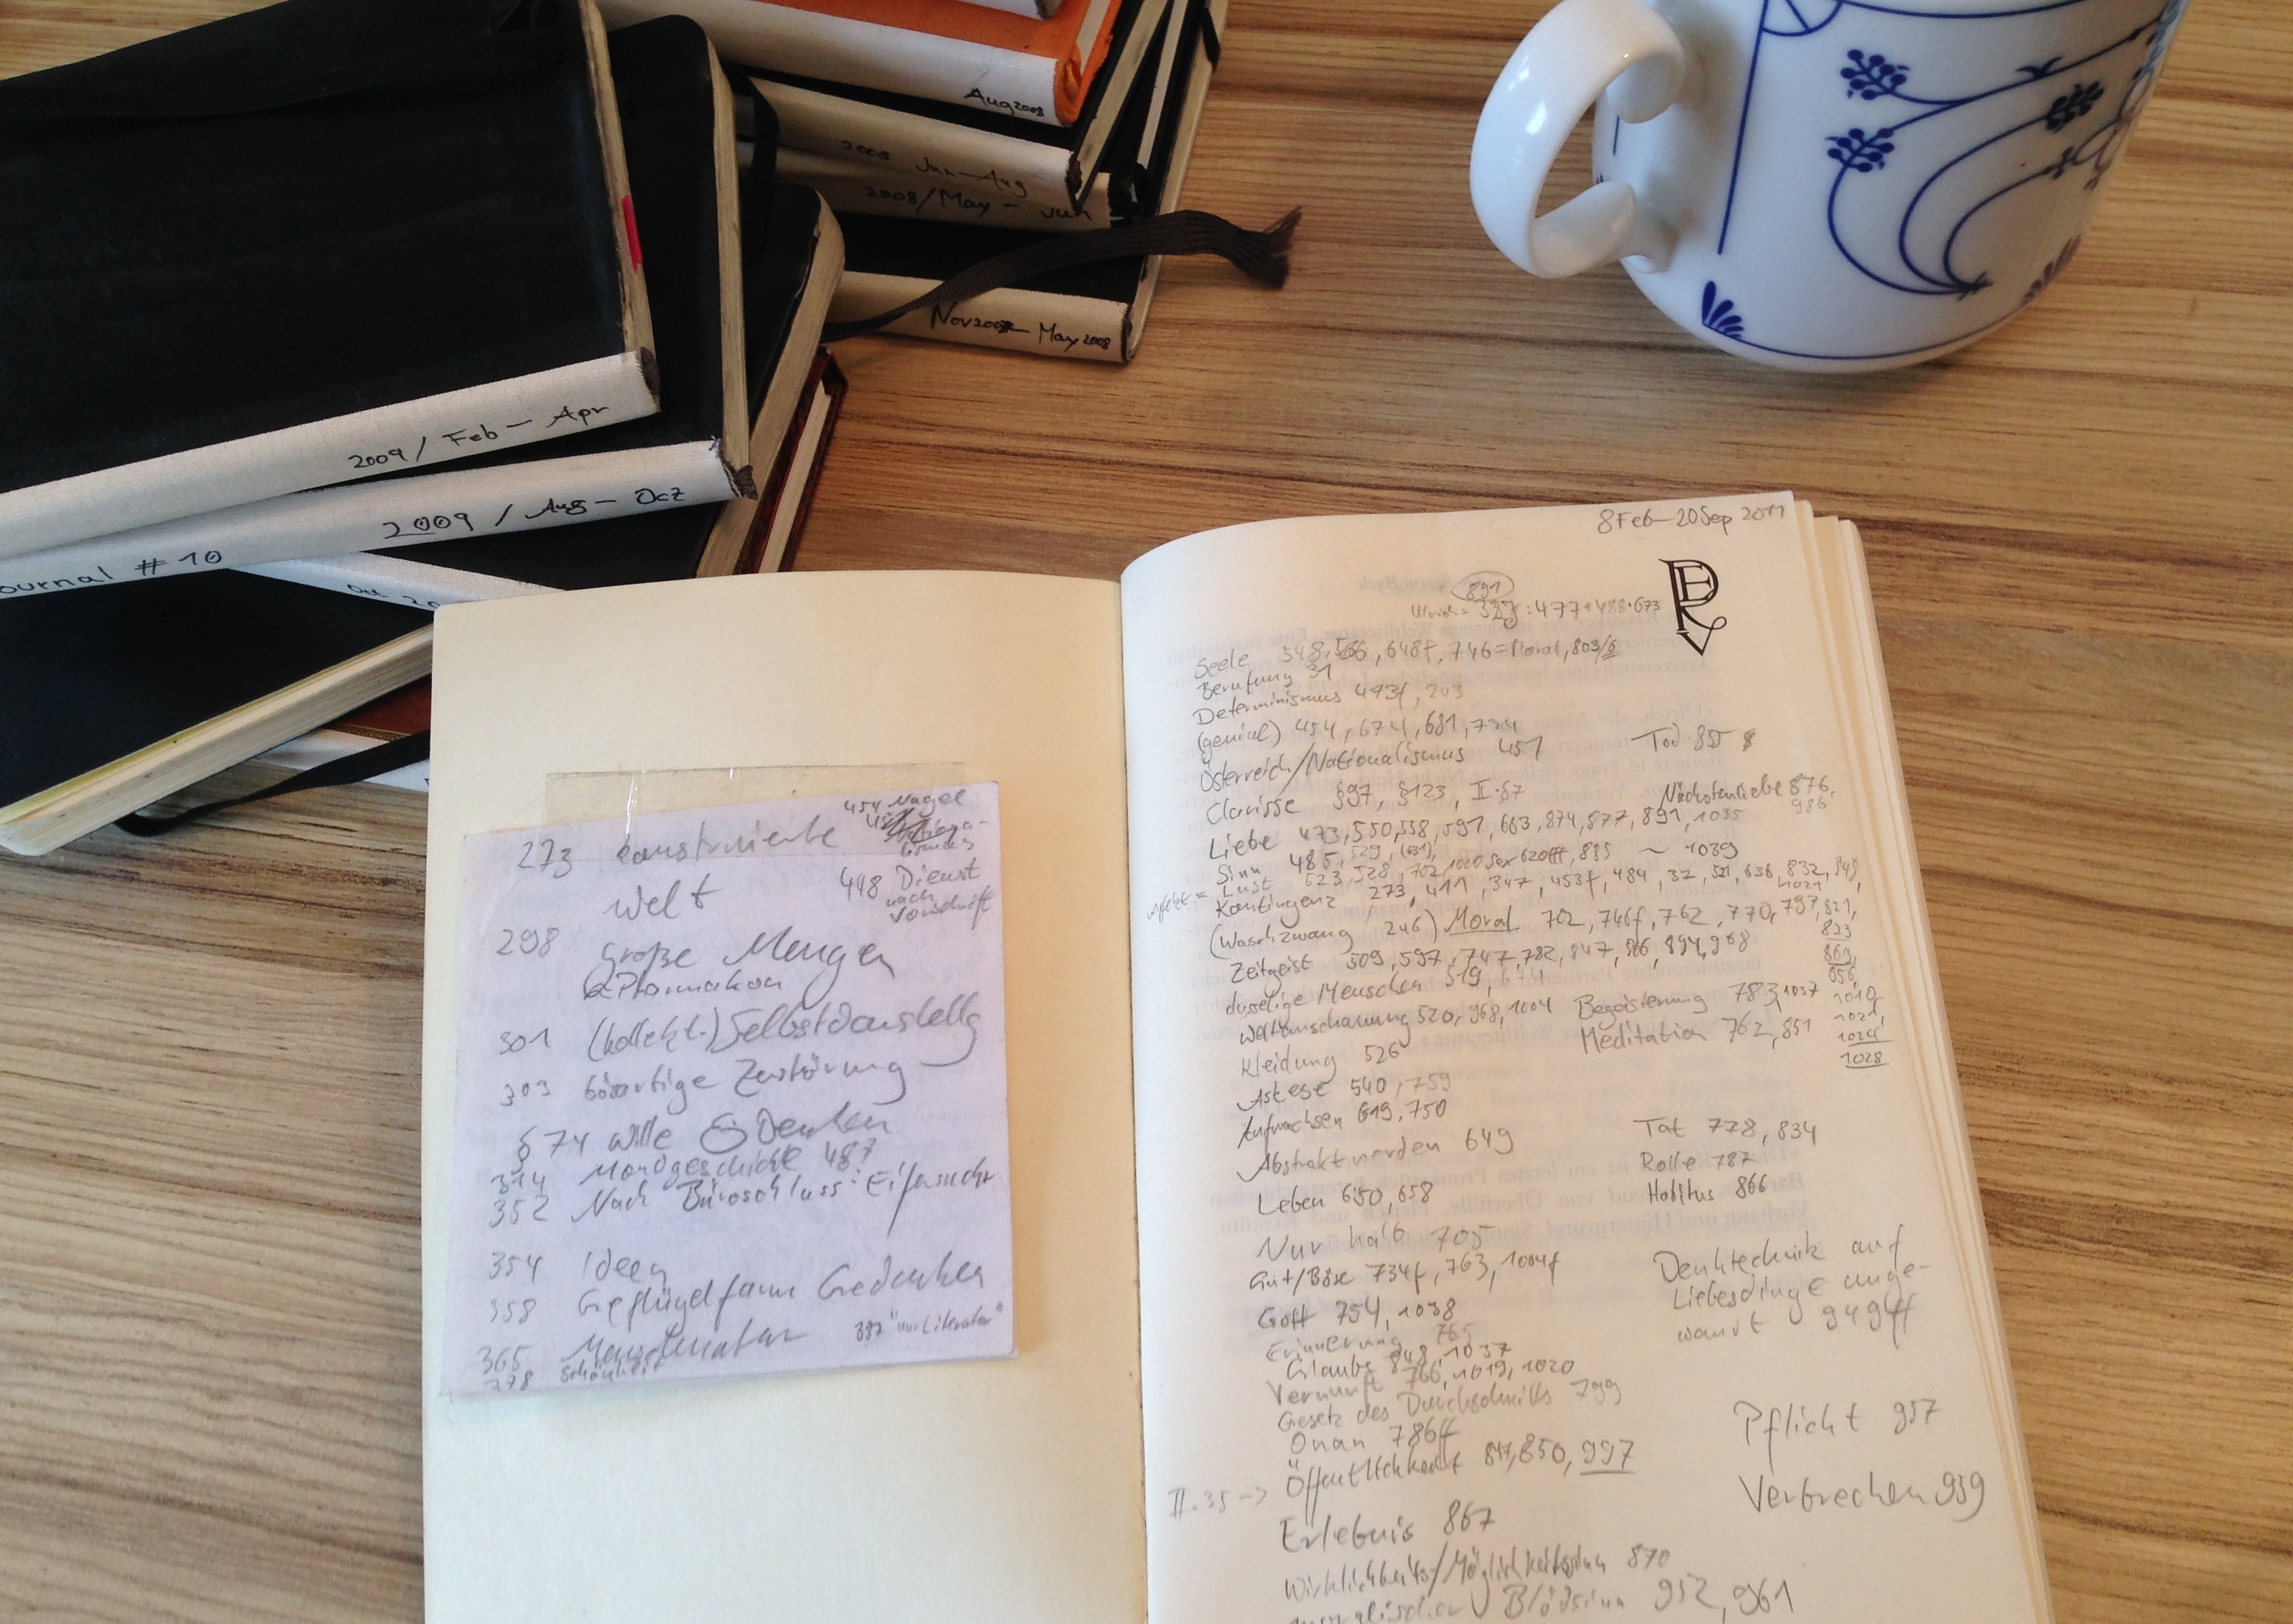 Aug 2008
2008 Jun-Aug
2008/May - Jun
Nov 2007 - May 2008
2009 / Feb - Apr
2009 / Aug - Oct
ournal # 10
Oct 20
454 Nagel
273 konstruierte
Welt
448 Dienst
nach
Vorschrift
298 große Mengen
301 (kollekt.) Selbstdarstellg
303 bösartige Zerstörung
§ 74 Wille Denken
314 Mondgeschichte 487
352 Nach Büroschluss: Eifersucht
354 Ideen
358 Geflügelfarm Gedanken
365 397 "nur Literatur"
778 Schönheit
8 Feb-20 Sep 2011
891
Ulrich =
Seele 548, 566, 648f, 746 = Moral, 803/6
Berufung 31
Determinismus 473f, 203
(genial) 454, 674, 681, 794
Österreich/Nationalismus 451
Tod 855
Clarisse §97, §123, II.§7
Nächstenliebe 876,
986
Liebe 473, 550, 558, 591, 663, 874, 877, 891, 1035
Sinn 485, 529, (631), 885 ~ 1039
Lust 523, 528, 702, 1020 Sex 620ff
Kontingenz 273, 411, 347, 453f, 484, 32, 521, 636, 832, 949,
1021
(Waschzwang 246) Moral 702, 746f, 762, 770, 797, 821,
823
869,
956,
1010,
1021,
1024
1028
Zeitgeist 509, 597, 747, 782, 847, 866, 894, 968
dusselige Menschen 519, 674
Weltanschauung 520, 968, 1004
Begeisterung 783, 1037
Meditation 762, 851
Kleidung 526
Askese 540, 759
Aufwachsen 619, 750
Abstrakt werden 649
Tat 778, 834
Rolle 787
Habitus 866
Leben 650, 658
Nur halb 705
Gut/Böse 734f, 763, 1004f
Denktechnik auf
Liebesdinge ange-
wandt 949ff
Gott 754, 1038
Erinnerung 765
Glaube 848, 1037
Vernunft 766, 1019, 1020
Gesetz des Durchschnitts 799
Onan 786ff
Pflicht 957
II.35 -> Öffentlichkeit 847, 850, 997
Verbrechen 959
Erlebnis 867
Wirklichkeits/Möglichkeitssinn 870
Blödsinn 952, 961